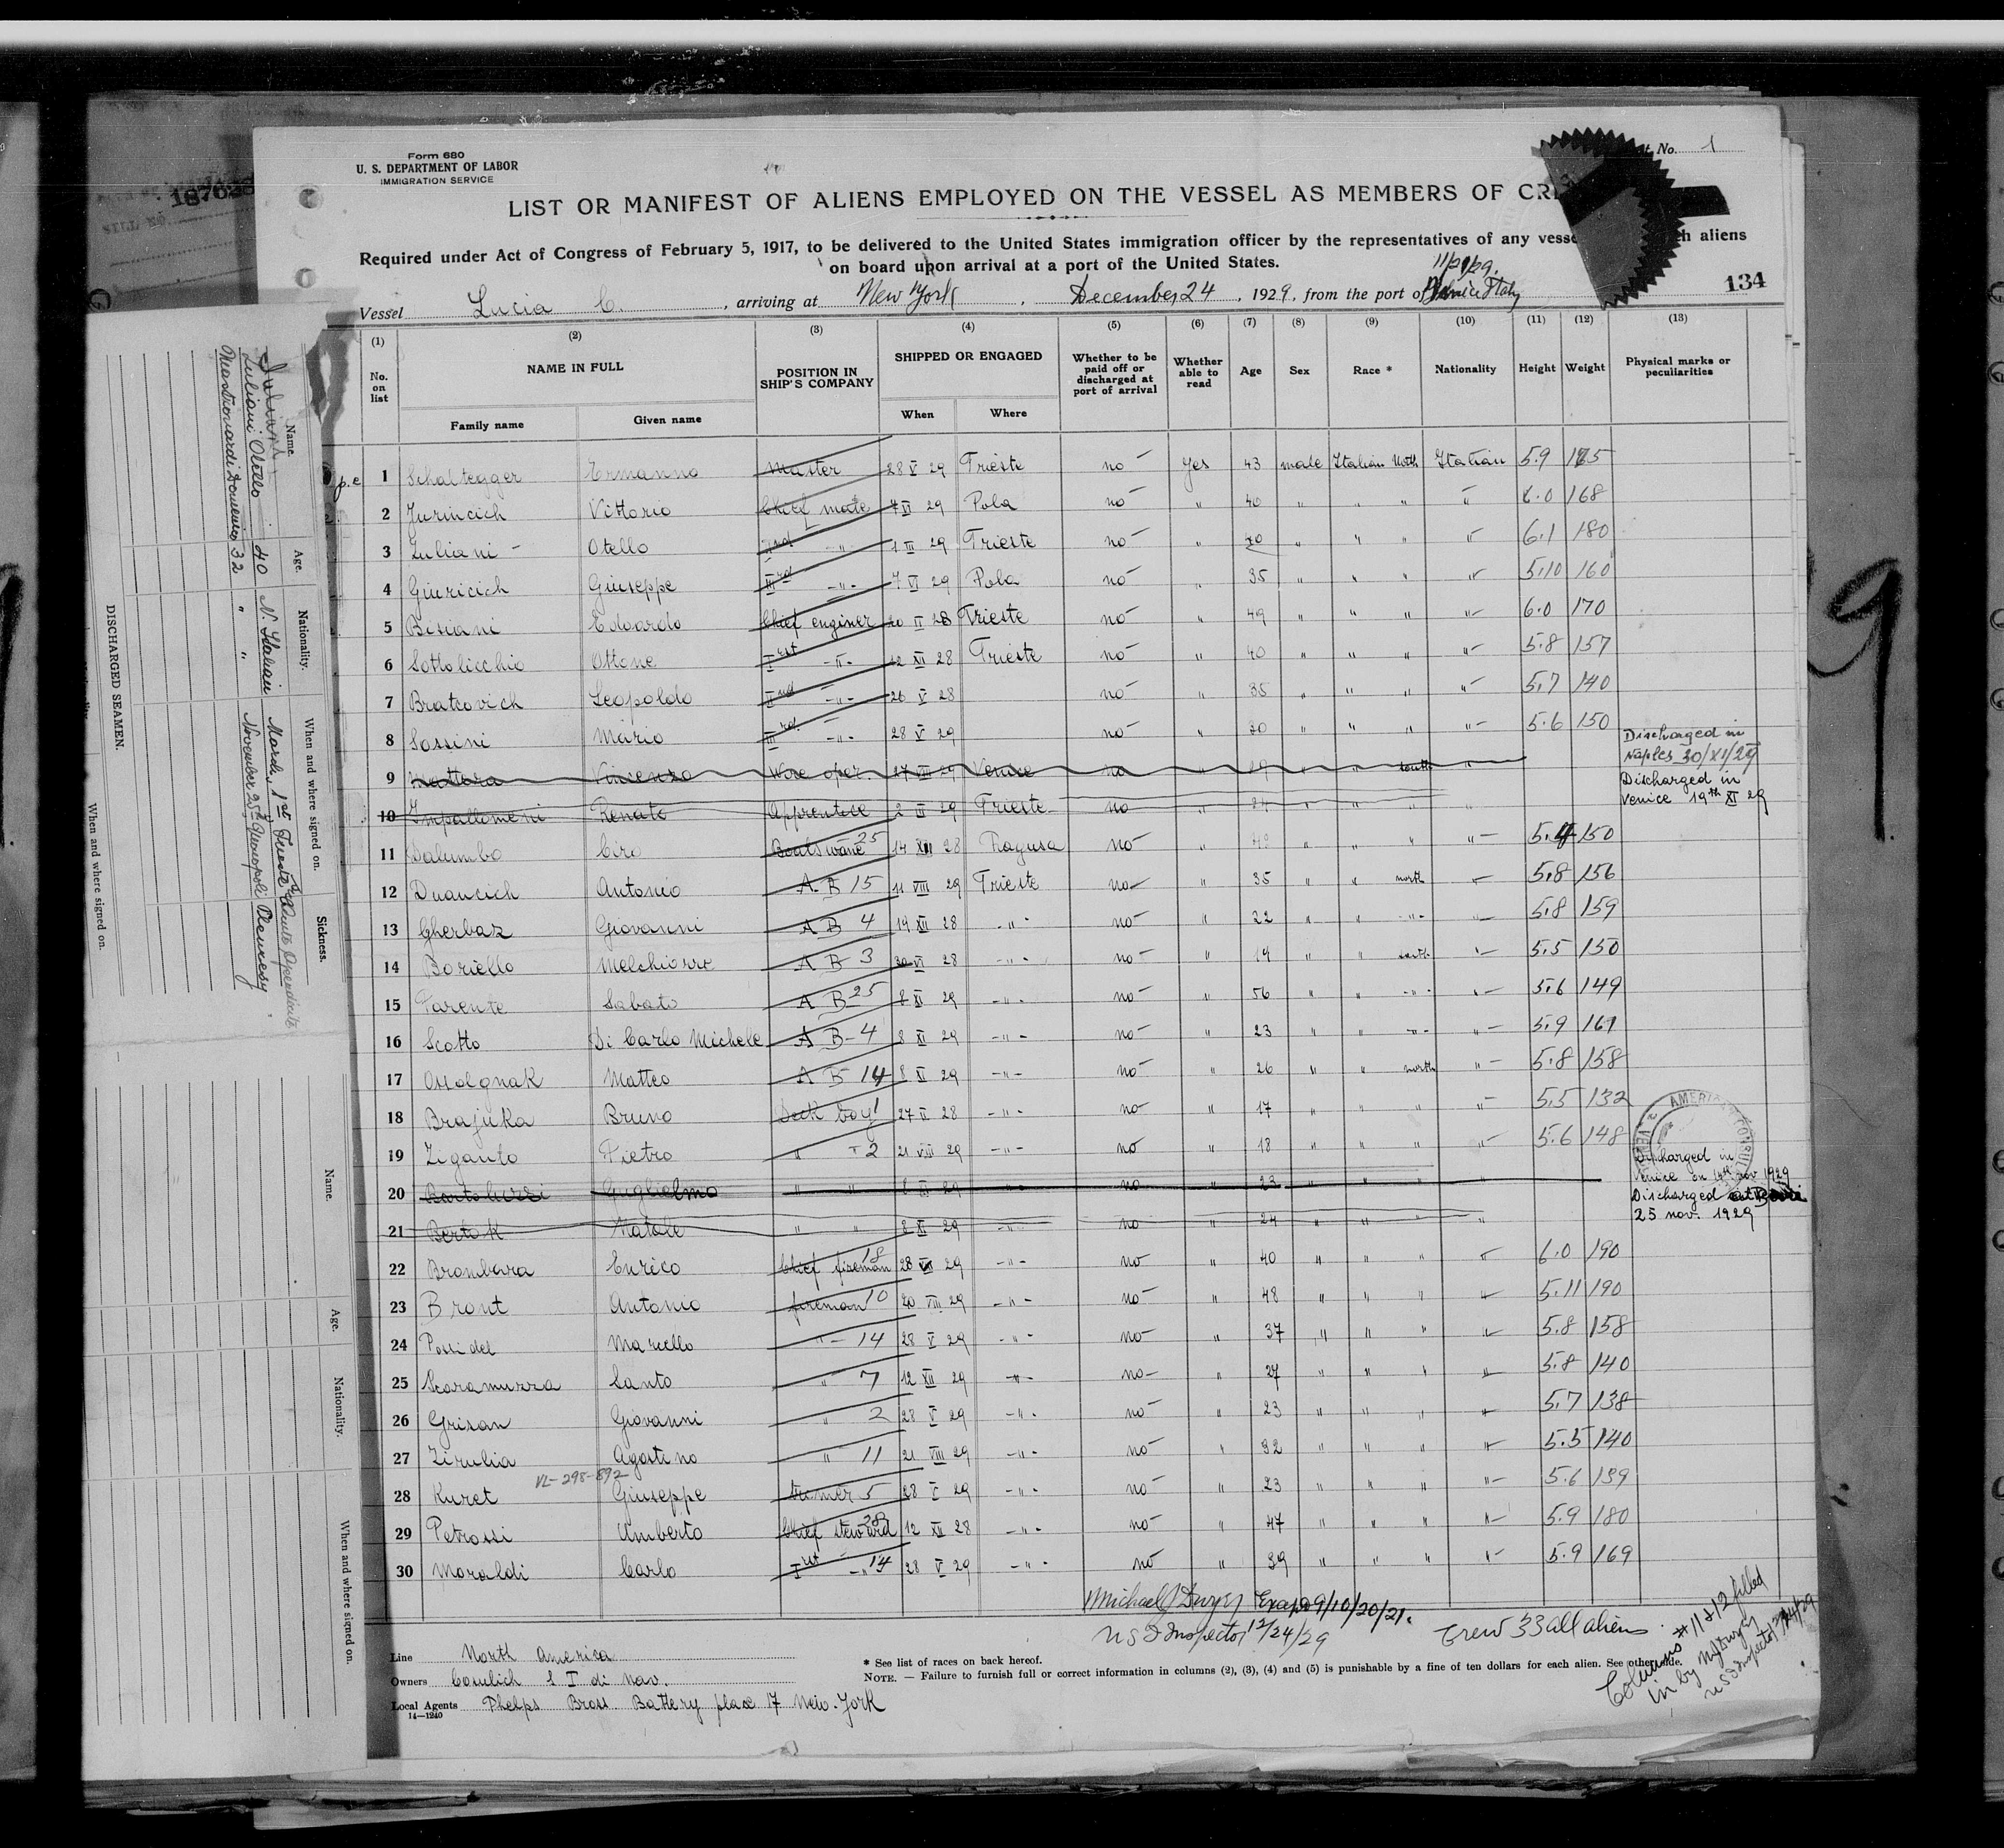 187628
Form 680
U. S. DEPARTMENT OF LABOR
IMMIGRATION SERVICE
No. 1
LIST OR MANIFEST OF ALIENS EMPLOYED ON THE VESSEL AS MEMBERS OF CRE
Required under Act of Congress of February 5, 1917, to be delivered to the United States immigration officer by the representatives of any vesse h aliens
on board upon arrival at a port of the United States.
134
Vessel Lucia C. , arriving at New York , December 24 , 1929, from the port of Venice Italy
(1) (2) (3) (4) (5) (6) (7) (8) (9) (10) (11) (12) (13)
No. on list NAME IN FULL POSITION IN SHIP'S COMPANY SHIPPED OR ENGAGED Whether to be paid off or discharged at port of arrival Whether able to read Age Sex Race * Nationality Height Weight Physical marks or peculiarities
Family name Given name When Where
1 Schaltegger Ermanno Master 28 V 29 Trieste no yes 43 male Italian North Italian 5.9 175
2 Jurincich Vittorio Chief mate Pola no " 40 " " " " 6.0 168
3 Zuliani Otello IInd -"- 1 III 29 Trieste no " 40 " " " " 6.1 180
4 Giuricich Giuseppe IIIrd -"- 7 VI 29 Pola no " 35 " " " " 5.10 160
5 Bisiani Edoardo Chief enginer 20 II 28 Trieste no " 49 " " " " 6.0 170
6 Sottolicchio Ottone Irst -"- 12 XII 28 Trieste no " 40 " " " " 5.8 157
7 Bratcovich Leopoldo IInd -"- 26 V 28 no " 35 " " " " 5.7 140
8 Sossini Mario IIIrd -"- 28 V 29 no " 30 " " " " 5.6 150
Discharged in
Naples 30/XI/29
9 Mattara Vincenzo oper 27 VIII 29 Venice no " 29 " " south "
Discharged in
Venice 19th XI 29
10 Impallomeni Renato Apprentice 2 III 29 Trieste no " 24 " " " "
11 Palumbo Ciro Boatswane 25 14 XII 28 Ragusa no " 48 " " " " 5.4 150
12 Duancich Antonio A.B 15 11 VIII 29 Trieste no " 35 " " north " 5.8 156
13 Gherbaz Giovanni A B 4 19 XII 28 -"- no " 22 " " -"- " 5.8 159
14 Boriello Melchiorre A B 3 30 VI 28 -"- no " 19 " " south " 5.5 150
15 Parente Sabato A B 25 8 XI 29 -"- no " 56 " " -"- " 5.6 149
16 Scotto Di Carlo Michele A B-4 8 XI 29 -"- no " 23 " " -"- " 5.9 161
17 Matteo A B 14 8 XI 29 -"- no " 26 " " north " 5.8 158
18 Brajuka Bruno Deck boy 1 27 II 28 -"- no " 17 " " " " 5.5 132
19 Ziganto Pietro " 2 21 VIII 29 -"- no " 18 " " " " 5.6 148
Discharged in
Venice on nov 1929
20 Guglielmo " " 8 XI 29 -"- no " 23 " " " "
Discharged at
25 nov. 1929
21 Bertok Natale " " 8 XI 29 -"- no " 24 " " " "
22 Brombara Enrico Chief fireman 18 28 29 -"- no " 40 " " " " 6.0 190
23 Bront Antonio fireman 10 20 VIII 29 -"- no " 48 " " " " 5.11 190
24 Possidel Marcello " 14 28 V 29 -"- no " 37 " " " " 5.8 158
25 Scaramuzza Santo " 7 12 XII 29 -"- no " 27 " " " " 5.8 140
26 Grisan Giovanni " 2 28 V 29 -"- no " 23 " " " " 5.7 138
27 Zirulia Agostino " 11 21 VIII 29 -"- no " 32 " " " " 5.5 140
VL-298-892
28 Kuret Giuseppe trimer 5 28 V 29 -"- no " 23 " " " " 5.6 139
29 Petrossi Umberto Chief steward 12 XII 28 -"- no " 47 " " " " 5.9 180
30 Moraldi Carlo Irst -"- 14 28 V 29 -"- no " 39 " " " " 5.9 169
Michael J Dwyer Except 9/10/20/21.
U S I Inspector 12/24/29
Crew 33 all aliens
Columns #11 & 12 filled
in by MJ Dwyer
U S I Inspector 12/24/29
Line North America
Owners Cosulich S T di Nav.
Local Agents Phelps Bross. Battery place 17 New-York
14—1240
* See list of races on back hereof.
NOTE. — Failure to furnish full or correct information in columns (2), (3), (4) and (5) is punishable by a fine of ten dollars for each alien. See other side.
DISCHARGED SEAMEN.
Name. Age. Nationality. When and where signed on. Sickness.
Zuliani Otello 40 N. Italian March, 1st Trieste
32 " " November 25th Monopoli Pleuresy
When and where signed on.
Name. Age. Nationality. When and where signed on.